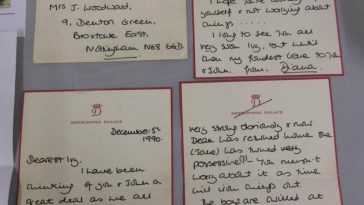 Mrs J. Woodward,
9, Denton Green,
Broxtowe East,
Nottingham NG8 6GD.
yourself & not worrying about
things ----
I long to see you all
very soon Ivy, but until
then my fondest love to you
& John, from,
Diana.
KENSINGTON PALACE
December 5th
1990.
Dearest Ivy,
I have been
thinking of you & John a
great deal as we all
KENSINGTON PALACE
very strong obviously & now
Dean has returned home the
has turned very
possessive! You mustn't
worry about it as time
will iron things out.
The boys are thrilled at